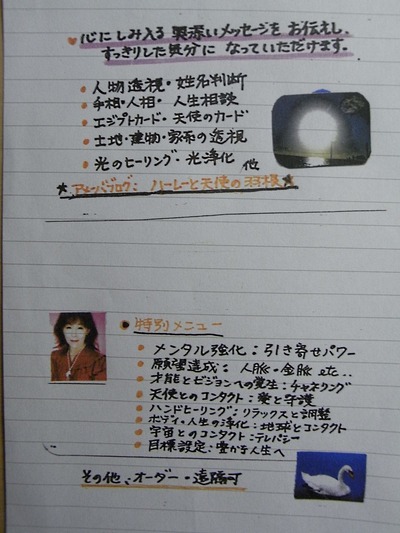 心にしみ入る 奥深いメッセージを お伝えし、
すっきりした気分に なっていただけます。
人物透視・姓名判断
手相・人相・人生相談
エジプトカード・天使のカード
土地・建物・家系の透視
光のヒーリング・光浄化 他
★アメーバブログ: ハーレーと天使の羽根★
特別メニュー
メンタル強化:引き寄せパワー
願望達成: 人脈・金脈 etc...
才能とビジョンへの覚生:チャネリング
天使とのコンタクト:愛と守護
ハンドヒーリング:リラックスと調整
ボディ・人生の浄化:地球とコンタクト
宇宙とのコンタクト:テレパシー
目標設定:豊かな人生へ
その他:オーダー・遠隔可